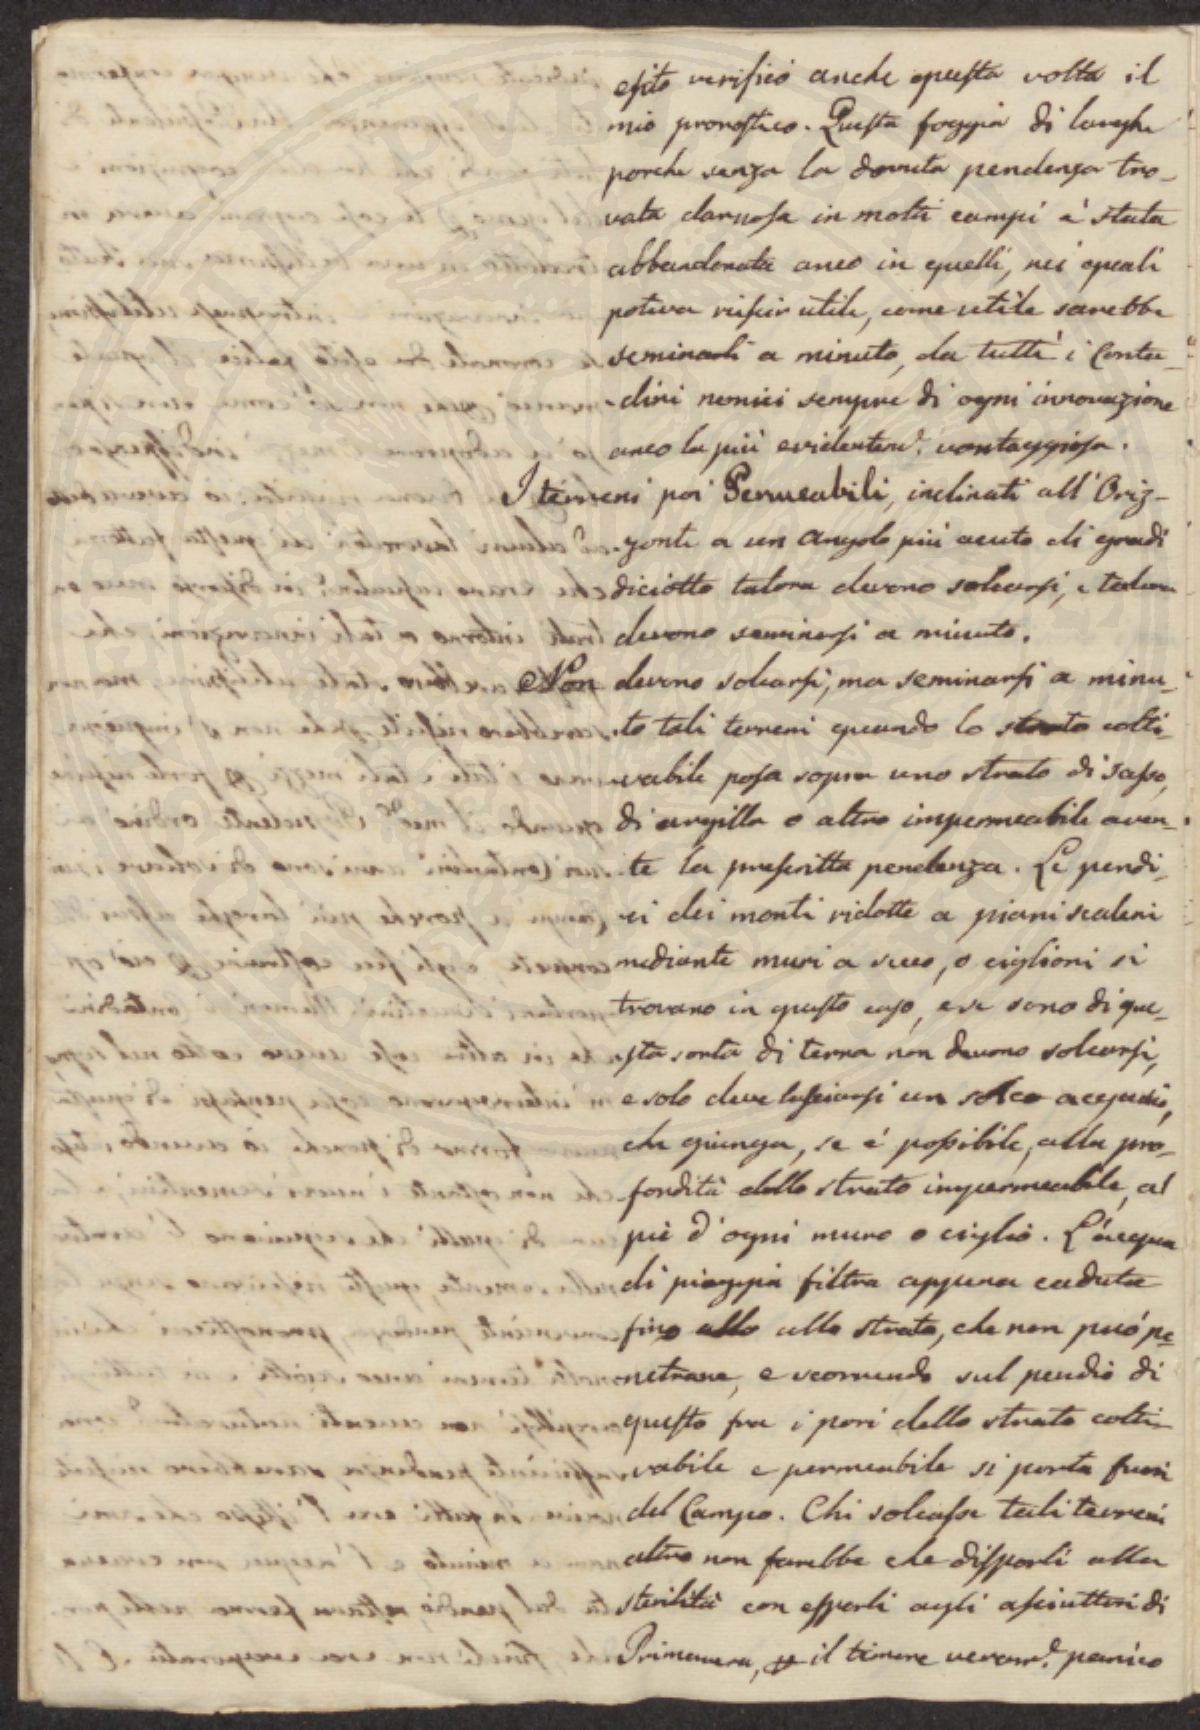 esito verificò anche questa volta il
mio pronostico. Questa foggia di larghe
porche senza la dovuta pendenza tro-
vata dannosa in molti campi è stata
abbandonata anco in quelli, nei quali
poteva riuscir utile, come utile sarebbe
seminarli a minuto, da tutti i Conta-
dini nemici sempre di ogni innovazione
anco la più evidentem.e vantaggiosa.
I terreni poi Permeabili, inclinati all'Oriz-
zonte a un angolo più acuto di gradi
diciotto talora devono solcarsi, e talora
devono seminarsi a minuto.
Non devono solcarsi, ma seminarsi a minu-
to tali terreni quando lo strato colti-
vabile posa sopra uno strato di sasso,
di argilla o altro impermeabile aven-
te la prescritta pendenza. Le pendi-
ci dei monti ridotte a piani scaleni
mediante muri a secco, o ciglioni si
trovano in questo caso, e se sono di que-
sta sorta di terra non devono solcarsi,
e solo deve lasciarsi un solco acquaio,
che giunga, se è possibile, alla pro-
fondità dello strato impermeabile, al
piè d'ogni muro o ciglio. L'acqua
di pioggia filtra appena caduta
fino allo strato, che non può pe-
netrare, e scorrendo sul pendio di
questo fra i pori dello strato colti-
vabile e permeabile si porta fuori
del Campo. Chi solcasse tali terreni
altro non farebbe che disporli alla
sterilità con esporli agli asciuttori di
Primavera, p il timore veram.e panico